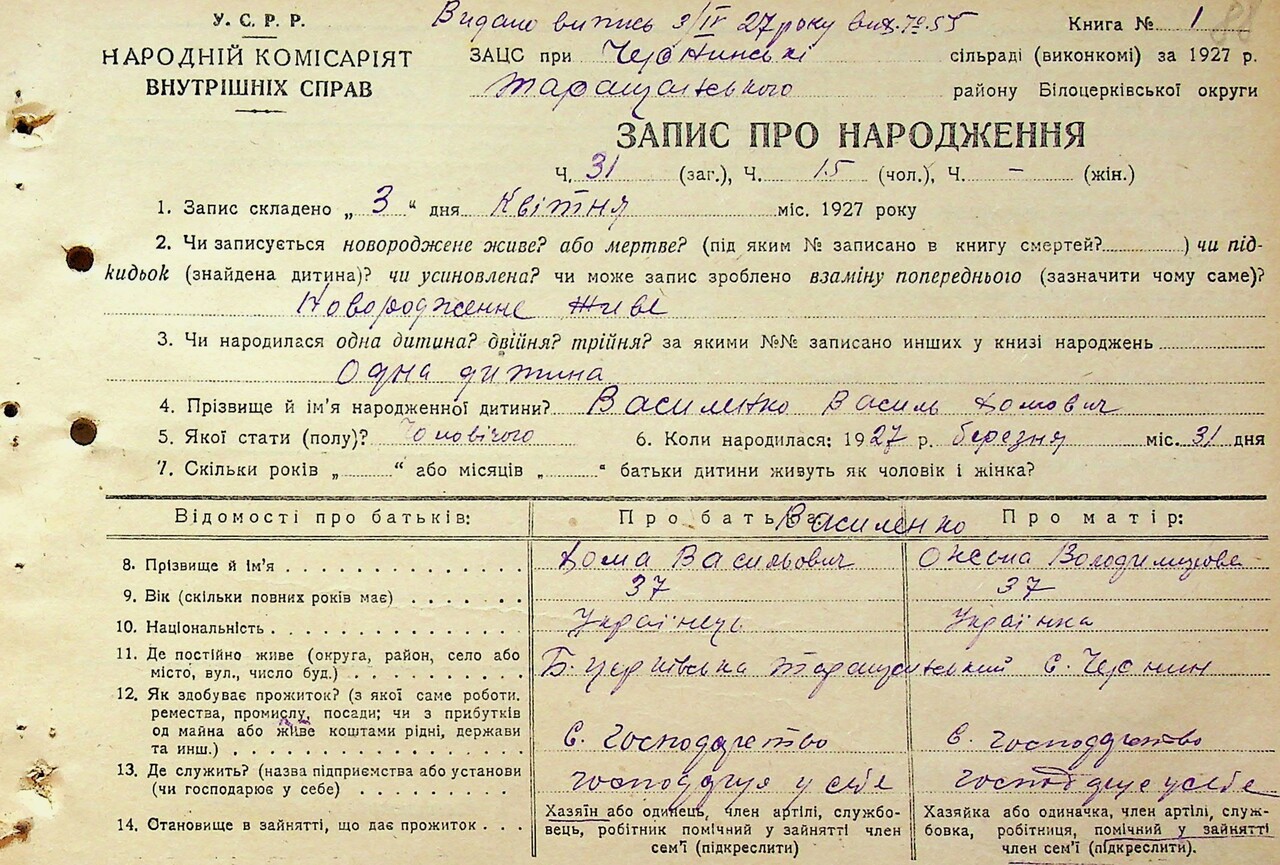 У. С. Р. Р.
НАРОДНІЙ КОМІСАРІЯТ
ВНУТРІШНІХ СПРАВ
Видано витпись 3/IV 27 року вих. № 55
Книга № 1 88
ЗАЦС при сільраді (виконкомі) за 1927 р.
Таращанського району Білоцерківської округи
ЗАПИС ПРО НАРОДЖЕННЯ
Ч. 31 (заг.), Ч. 15 (чол.), Ч. – (жін.)
1. Запис складено „ 3 “ дня Квітня міс. 1927 року
2. Чи записується новороджене живе? або мертве? (під яким № записано в книгу смертей? ) чи під-
кидьок (знайдена дитина)? чи усиновлена? чи може запис зроблено взаміну попереднього (зазначити чому саме)?
Новородженне живе
3. Чи народилася одна дитина? двійня? трійня? за якими №№ записано инших у книзі народжень
Одна дитина
4. Прізвище й ім’я народженної дитини? Василенко Василь Хомович
5. Якої стати (полу)? Чоловічого 6. Коли народилася: 1927 р. березня міс. 31 дня
7. Скільки років „ “ або місяців „ “ батьки дитини живуть як чоловік і жінка?
Відомості про батьків: Про батька: Василенко Про матір:
8. Прізвище й ім’я Хома Васильович Оксана Володимирова
9. Вік (скільки повних років має) 37 37
10. Національність Українець Українка
11. Де постійно живе (округа, район, село або
місто, вул., число буд.) Б. Церківська Таращанський с. Чернин
12. Як здобуває прожиток? (з якої саме роботи.
ремества, промислу, посади; чи з прибутків
од майна або живе коштами рідні, держави
та инш.) С. Господарство С. Господарство
13. Де служить? (назва підприємства або установи
(чи господарює у себе) господарує у себе господарує у себе
14. Становище в зайнятті, що дає прожиток
Хазяїн або одинець, член артілі, службо-
вець, робітник помічний у зайнятті член
сем’ї (підкреслити)
Хазяйка або одиначка, член артілі, служ-
бовка, робітниця, помічний у зайнятті
член сем’ї (підкреслити).